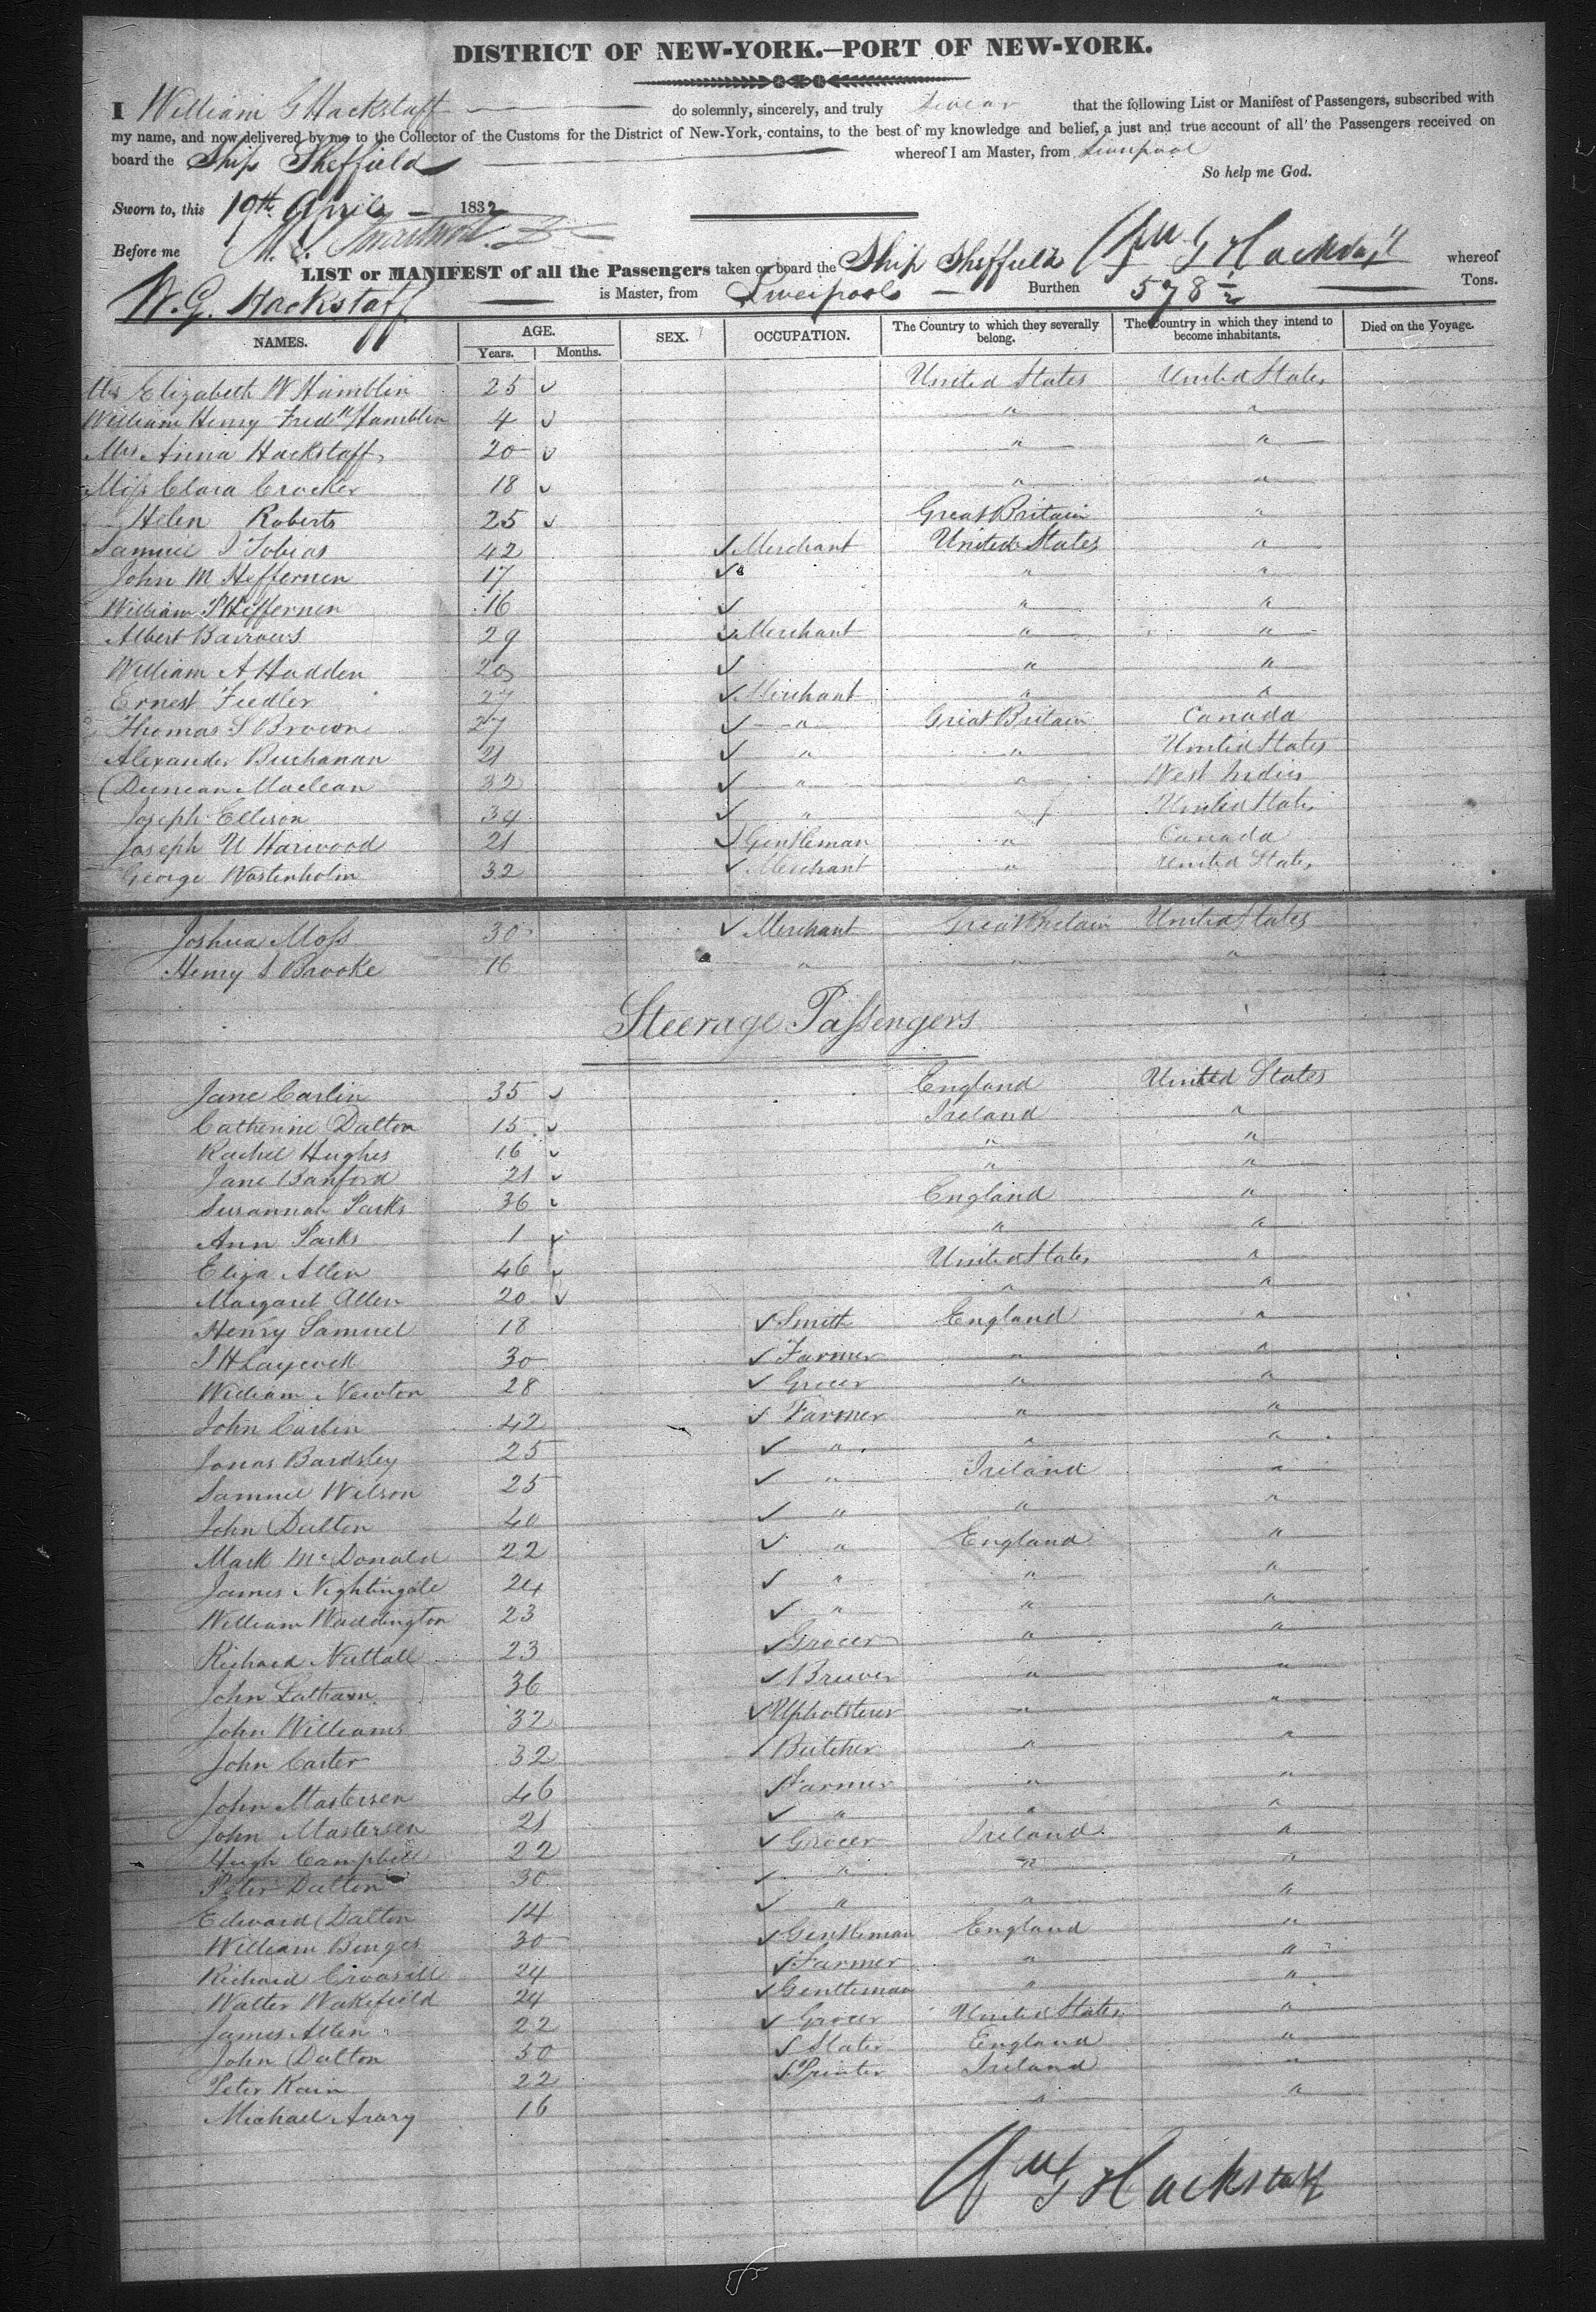 DISTRICT OF NEW-YORK.—PORT OF NEW-YORK.
I William G Hackstaff do solemnly, sincerely, and truly swear that the following List or Manifest of Passengers, subscribed with
my name, and now delivered by me to the Collector of the Customs for the District of New-York, contains, to the best of my knowledge and belief, a just and true account of all the Passengers received on
board the Ship Sheffield whereof I am Master, from Liverpool
So help me God.
Sworn to, this 19th April 1832
Before me
LIST or MANIFEST of all the Passengers taken on board the Ship Sheffield Wm G Hackstaff whereof
W. G. Hackstaff is Master, from Liverpool Burthen 578 1/2 Tons.
NAMES. AGE. SEX. OCCUPATION. The Country to which they severally belong. The Country in which they intend to become inhabitants. Died on the Voyage.
Years. Months.
Mrs Elizabeth W Hamblin 25 United States United States
William Henry Fredk Hamblin 4 " "
Mrs Anna Hackstaff 20 " "
Miss Clara Crocker 18 " "
Helen Roberts 25 Great Britain "
Samuel I Tobias 42 Merchant United States "
John M Heffernen 17 " " "
William P Heffernen 16 " "
Albert Barrows 29 Merchant " "
William A Hadden 20 " "
Ernest Fiedler 27 Merchant " "
Thomas S Brown 27 " Great Britain Canada
Alexander Buchanan 21 " " United States
Duncan Maclean 32 " " West Indies
Joseph Ellison 34 " " United States
Joseph U Harwood 21 Gentleman " Canada
George Wostenholm 32 Merchant " United States
Joshua Moss 30 Merchant Great Britain United States
Henry S Brooke 16 " " "
Steerage Passengers
Jane Carlin 35 England United States
Catherine Dalton 15 Ireland "
Rachel Hughes 16 " "
Jane Banford 21 " "
Susannah Parks 36 England "
Ann Parks 1 " "
Eliza Allen 46 United States "
Margaret Allen 20 " "
Henry Samuel 18 Smith England "
J H Laycock 30 Farmer " "
William Newton 28 Grocer " "
John Carlin 42 Farmer " "
Jonas Bardsley 25 " " "
Samuel Wilson 25 " Ireland "
John Dalton 40 " " "
Mark McDonald 22 " England "
James Nightingale 24 " " "
William Waddington 23 " " "
Richard Nuttall 23 Grocer " "
John Latham 36 Brewer " "
John Williams 32 Upholsterer " "
John Carter 32 Butcher " "
John Mastersen 46 Farmer " "
John Mastersen 21 " " "
Hugh Campbell 22 Grocer Ireland "
Peter Dalton 30 " " "
Edward Dalton 14 " " "
William Binges 30 Gentleman England "
Richard 24 Farmer " "
Walter Wakefield 24 Gentleman " "
James Allen 22 Grocer United States "
John Dalton 50 Slater England "
Peter Kain 22 Printer Ireland "
Michael 16 " "
Wm G Hackstaff